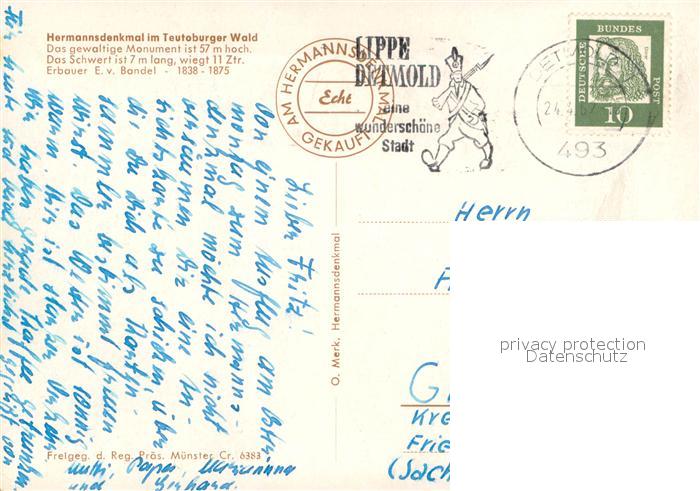 Hermannsdenkmal im Teutoburger Wald
Das gewaltige Monument ist 57 m hoch.
Das Schwert ist 7 m lang, wiegt 11 Ztr.
Erbauer E. v. Bandel - 1838 - 1875
AM HERMANNSDENKMAL
Echt
GEKAUFT
LIPPE
DETMOLD
eine
wunderschöne
Stadt
DETMOLD
24.4.67
493
DEUTSCHE BUNDES POST
10
Lieber Fritz!
Von einem Ausflug am
montag zum Hermanns-
denkmal möchte ich nicht
versäumen Dir eine
Ansichtskarte zu schicken über
die Du Dich als
Sammler bestimmt freuen
wirst. Das Wetter ist sonnig
warm.
Wir haben gerade Kaffee getrunken
Mutti, Papa, Marianne
und Gerhard.
O. Merk, Hermannsdenkmal
Freigeg. d. Reg. Präs. Münster Cr. 6383
Herrn
A
G
Kre
Frie
(Sach
privacy protection
Datenschutz